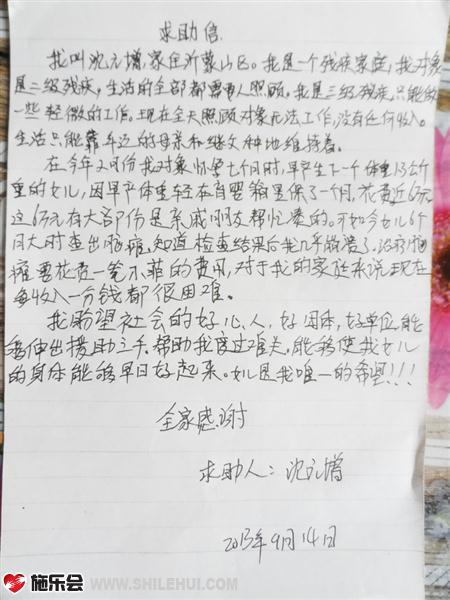 求助信
我叫沈元增,家住沂蒙山区。我是一个残疾家庭,我对象
是二级残疾,生活的全部都需要人照顾。我是三级残疾,只能做
一些轻微的工作。现在全天照顾对象无法工作,没有任何收入。
生活只能靠年迈的母亲和继父种地维持着。
在今年2月份我对象怀孕七个月时,早产生下一个体重1.3公斤
重的女儿,因早产体重轻在育婴箱里保了一个月,花费近6万元
这6万元有大部份是亲戚朋友帮忙凑的。开如今女儿6个
月大时查出脑瘫,知道检查结果后我几乎崩溃了,治疗脑
瘫需花费一笔不菲的费用,对于我的家庭来说现在
每收入一分钱都很困难。
我盼望社会的好心人,好团体,好单位,能
够伸出援助之手,帮助我度过难关,能够使我女儿
的身体能够早日好起来。女儿是我唯一的希望!!!
全家感谢
求助人:沈元增
2013年9月14日
施乐会 WWW.SHILEHUI.COM